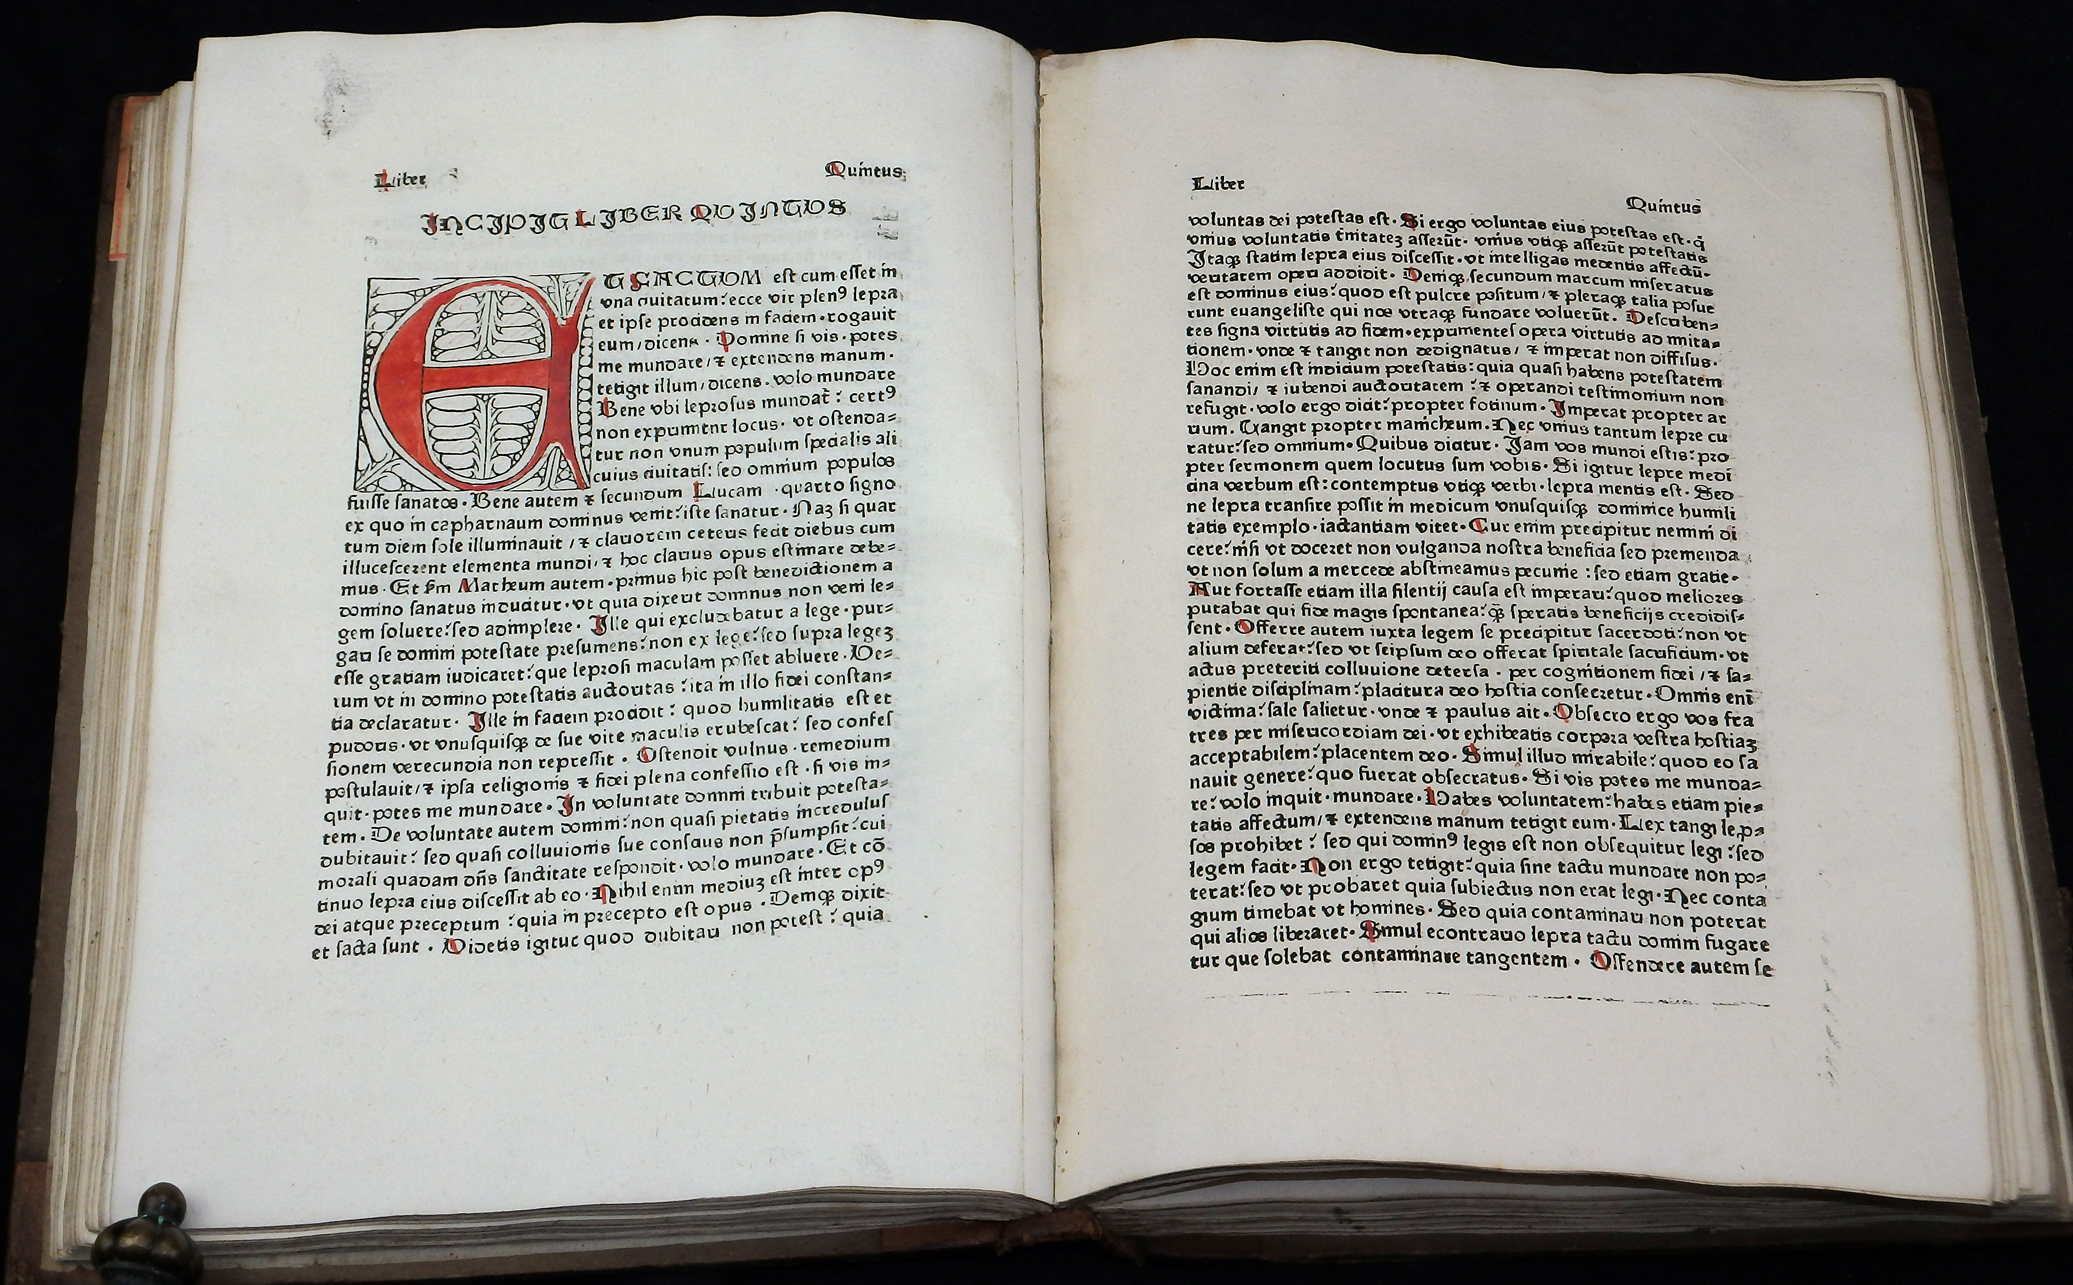 Liber Quintus
INCIPIT LIBER QVINTVS
ET FACTVM est cum esset in
vna ciuitatum: ecce vir plenꝰ lepra
et ipse procidens in faciem·rogauit
eum/dicens· Domine si vis·potes
me mundare/⁊ extendens manum·
tetigit illum/dicens·volo mundare
Bene vbi leprosus mundat̄: certꝰ
non exprimitur locus· vt ostenda⸗
tur non vnum populum specialis ali
cuius ciuitatis: sed omnium populos
fuisse sanatos·Bene autem ⁊ secundum Lucam ·quarto signo
ex quo in capharnaum dominus venit:iste sanatur·Naꝫ si quar
tum diem sole illuminauit /⁊ clariorem ceteris fecit diebus cum
illucescerent elementa mundi/⁊ hoc clarius opus estimare debe⸗
mus·Et ẜm Matheum autem·primus hic post benedictionem a
domino sanatus inducitur·vt quia dixerit dominus non veni le⸗
gem soluere:sed adimplere· Ille qui excludebatur a lege·pur⸗
gari se domini potestate presumens:non ex lege:sed supra legeꝫ
esse gratiam iudicaret:que leprosi maculam posset abluere·Ve⸗
rum vt in domino potestatis auctoritas :ita in illo fidei constan⸗
tia declaratur· Ille in faciem procidit: quod humilitatis est et
pudoris·vt vnusquisqꝫ de sue vite maculis erubescat: sed confes
sionem verecundia non repressit · Ostendit vulnus·remedium
postulauit/⁊ ipsa religionis ⁊ fidei plena confessio est·si vis in⸗
quit·potes me mundare·In voluntate domini tribuit potesta⸗
tem·De voluntate autem domini:non quasi pietatis incredulus
dubitauit: sed quasi colluuionis sue conscius non p̄sumpsit:cui
morali quadam dn̄s sanctitate respondit·volo mundare·Et cō
tinuo lepra eius discessit ab eo·Nihil enim mediuꝫ est inter opꝰ
dei atque preceptum :quia in precepto est opus·Deniqꝫ dixit
et facta sunt· Videtis igitur quod dubitari non potest: quia
Liber Quintus
voluntas dei potestas est·Si ergo voluntas eius potestas est·q̄
vnius voluntatis t̄nitateꝫ asserūt·vnius vtiqꝫ asserūt potestatis
Itaqꝫ statim lepra eius discessit·vt intelligas medentis affectū·
veritatem operi addidit· Deniqꝫ secundum marcum miseratus
est dominus eius:quod est pulcre positum/⁊ pleraqꝫ talia posue
runt euangeliste qui nos vtraqꝫ fundare voluerūt· Describen⸗
tes signa virtutis ad fidem·exprimentes opera virtutis ad imita⸗
tionem·vnde ⁊ tangit non dedignatus/ ⁊ imperat non diffisus·
Hoc enim est indicium potestatis:quia quasi habens potestatem
sanandi/ ⁊ iubendi auctoritatem :⁊ operandi testimonium non
refugit·volo ergo dicit:propter fotinum·Imperat propter ar
rium·Tangit propter manicheum·Nec vnius tantum lepre cu
ratur:sed omnium·Quibus dicitur·Jam vos mundi estis:pro
pter sermonem quem locutus sum vobis·Si igitur lepre medi
cina verbum est:contemptus vtiqꝫ verbi·lepra mentis est·Sed
ne lepra transire possit in medicum vnusquisqꝫ dominice humili
tatis exemplo·iactantiam vitet·Cur enim precipitur nemini di
cere:nisi vt doceret non vulganda nostra beneficia sed premenda
vt non solum a mercede abstineamus pecunie :sed etiam gratie·
Aut fortasse etiam illa silentij causa est imperati:quod meliores
putabat qui fide magis spontanea:q̄ꝫ speratis beneficijs credidis⸗
sent·Offerre autem iuxta legem se precipitur sacerdoti:non vt
alium deferat:sed vt seipsum deo offerat spiritale sacrificium·vt
actus preteriti colluuione detersa·per cognitionem fidei /⁊ sa⸗
pientie disciplinam:placitura deo hostia consecretur·Omnis enī
victima:sale salietur·vnde ⁊ paulus ait·Obsecro ergo vos fra
tres per misericordiam dei·vt exhibeatis corpora vestra hostiaꝫ
acceptabilem:placentem deo·Simul illud mirabile:quod eo sa
nauit genere:quo fuerat obsecratus·Si vis potes me munda⸗
re:volo inquit·mundare·Habes voluntatem:habes etiam pie⸗
tatis affectum/⁊ extendens manum tetigit eum·Lex tangi lep⸗
sos prohibet : sed qui dominꝰ legis est non obsequitur legi:sed
legem facit·Non ergo tetigit:quia sine tactu mundare non po⸗
terat:sed vt probaret quia subiectus non erat legi·Nec conta
gium timebat vt homines·Sed quia contaminari non poterat
qui alios liberaret·Simul econtrario lepra tactu domini fugare
tur que solebat contaminare tangentem · Ostendere autem se